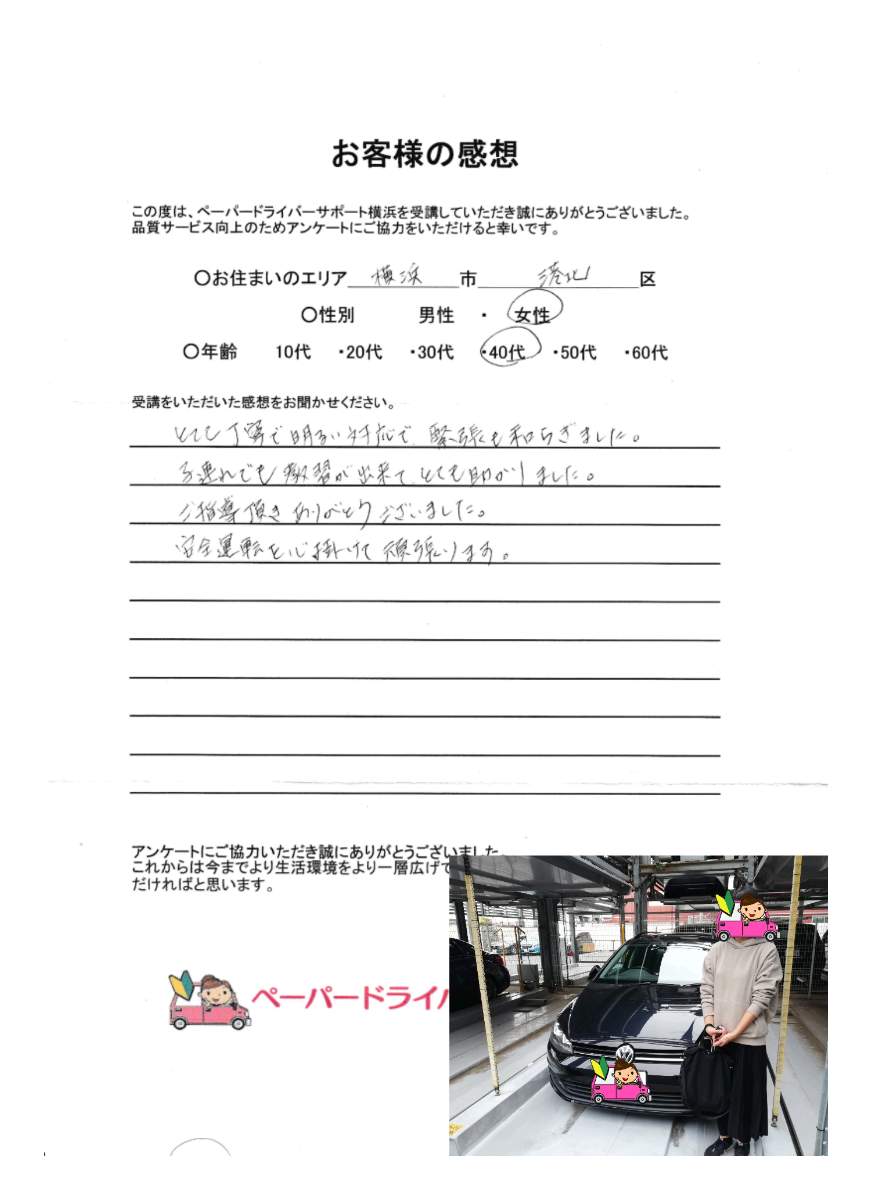 お客様の感想
この度は、ペーパードライバーサポート横浜を受講していただき誠にありがとうございました。
品質サービス向上のためアンケートにご協力をいただけると幸いです。
〇お住まいのエリア 横浜 市 港北 区
〇性別 男性 ・ 女性
〇年齢 10代 ・20代 ・30代 ・40代 ・50代 ・60代
受講をいただいた感想をお聞かせください。
とても丁寧で明るい対応で、緊張も和らぎました。
子連れでも教習が出来て、とても助かりました。
ご指導頂きありがとうございました。
安全運転を心掛けて頑張ります。
アンケートにご協力いただき誠にありがとうございました
これからは今までより生活環境をより一層広げて
だければと思います。
ペーパードライバ